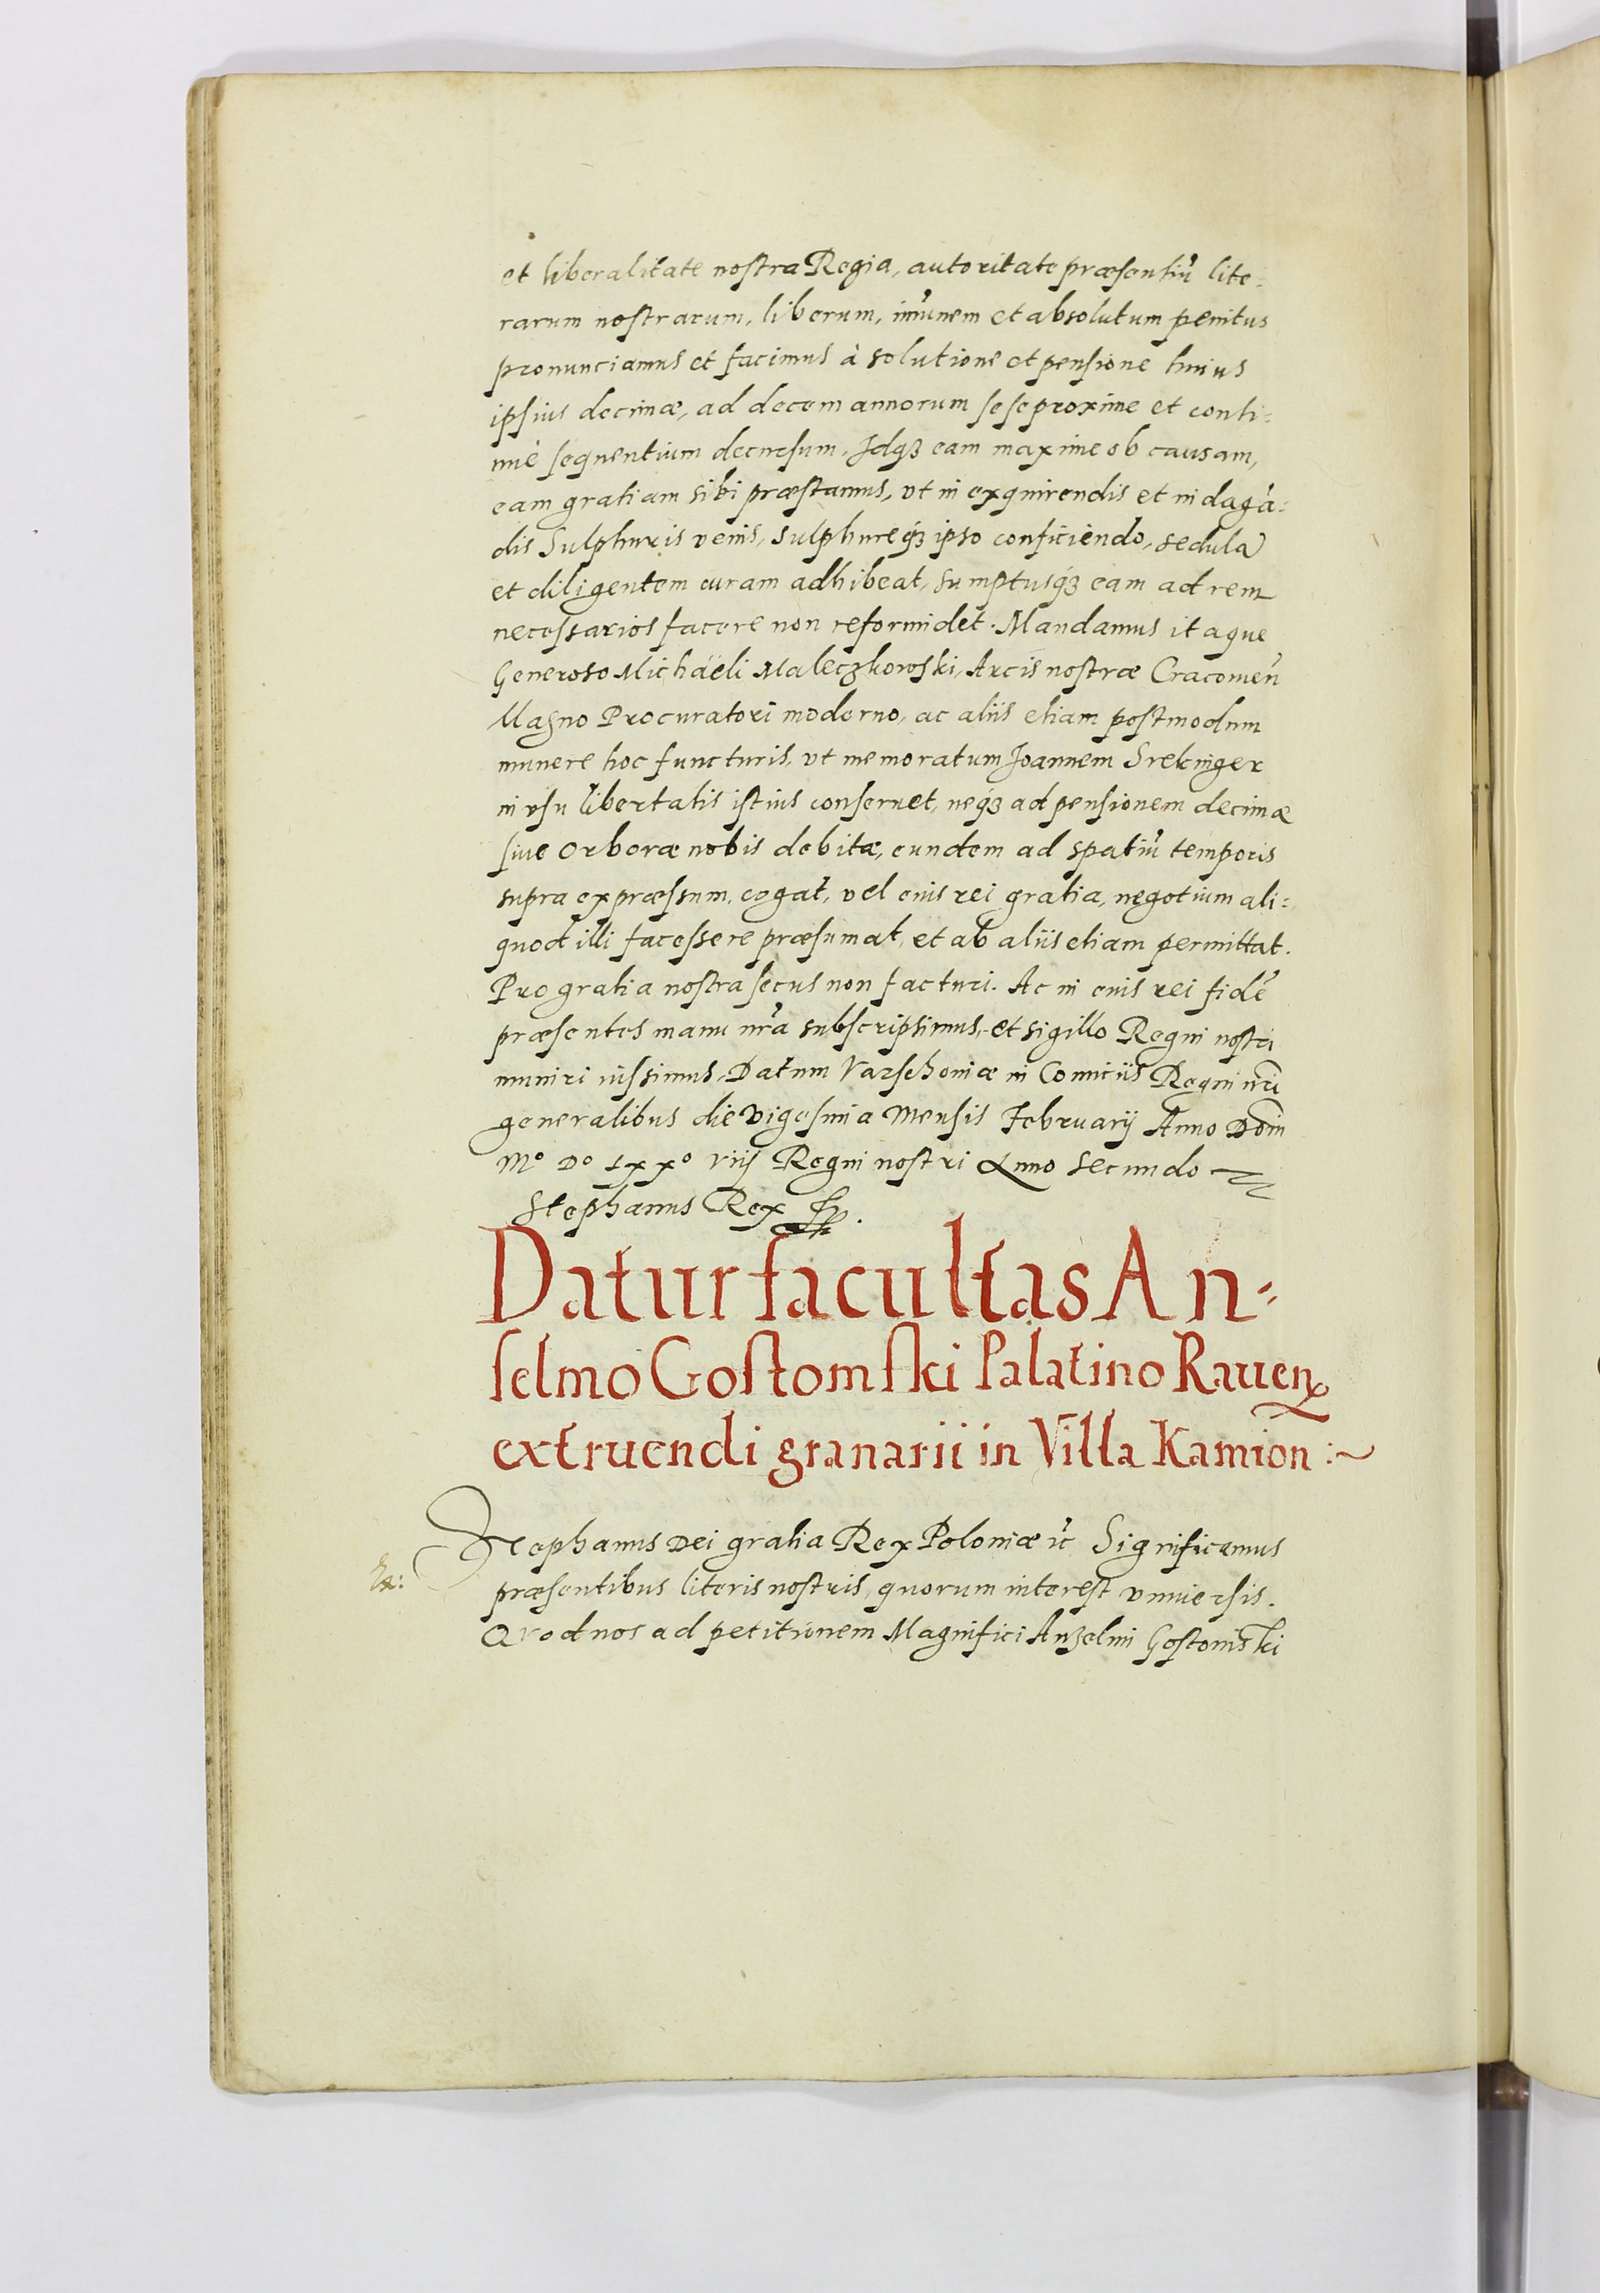 et liberalitate nostra Regia, autoritate præsentiũ lite-
rarum nostrarum, liberum, im̃unem et absolutum penitus
pronunciamus et facimus à solutione et pensione huius
ipsius decimæ, ad decem annorum sese proxime et conti-
nuè sequentium decursum. Idq3 eam maxime ob causam,
eam gratiam sibi præstamus, vt in exquirendis et indagã-
dis Sulphuris venis, sulphureq3 ipso conficiendo, sedulã
et diligentem curam adhibeat, sumptusq3 eam ad rem
necessarios facere non reformidet. Mandamus itaque
Generoso Michäeli Maleczkowski, Arcis nostræ Cracouieñ
Magno Procuratori moderno, ac aliis etiam postmodum
munere hoc functuris, vt memoratum Joannem Srekinger
in vsu libertatis istius conseruet, neq3 ad pensionem decimæ
siue Orboræ nobis debitæ, eundem ad spatiũ temporis
supra expræssum, cogat, vel eius rei gratia, negotium ali-
quod illi facessere præsumat, et ab aliis etiam permittat.
Pro gratia nostra secus non facturi. Ac in euis rei fidẽ
præsentes manu nr̃a subscripsimus, et sigillo Regni nostri
muniri iussimus. Datum Varschouiæ in Comitiis Regni nr̃i
generalibus die vigesima Mensis Februarij Anno Dom̃
Mº Dº Lxxº vij Regni nostri Anno secundo
Stephanus Rex
Datur facultas An-
selmo Gostomski Palatino Rauen
extruendi granarii in Villa Kamion :~
Stephanus Dei gratia Rex Poloniæ ꝛc̃ Significamus
præsentibus literis nostris, quorum interest vniuersis.
Quod nos ad petitionem Magnifici Anzelmi Gostomski